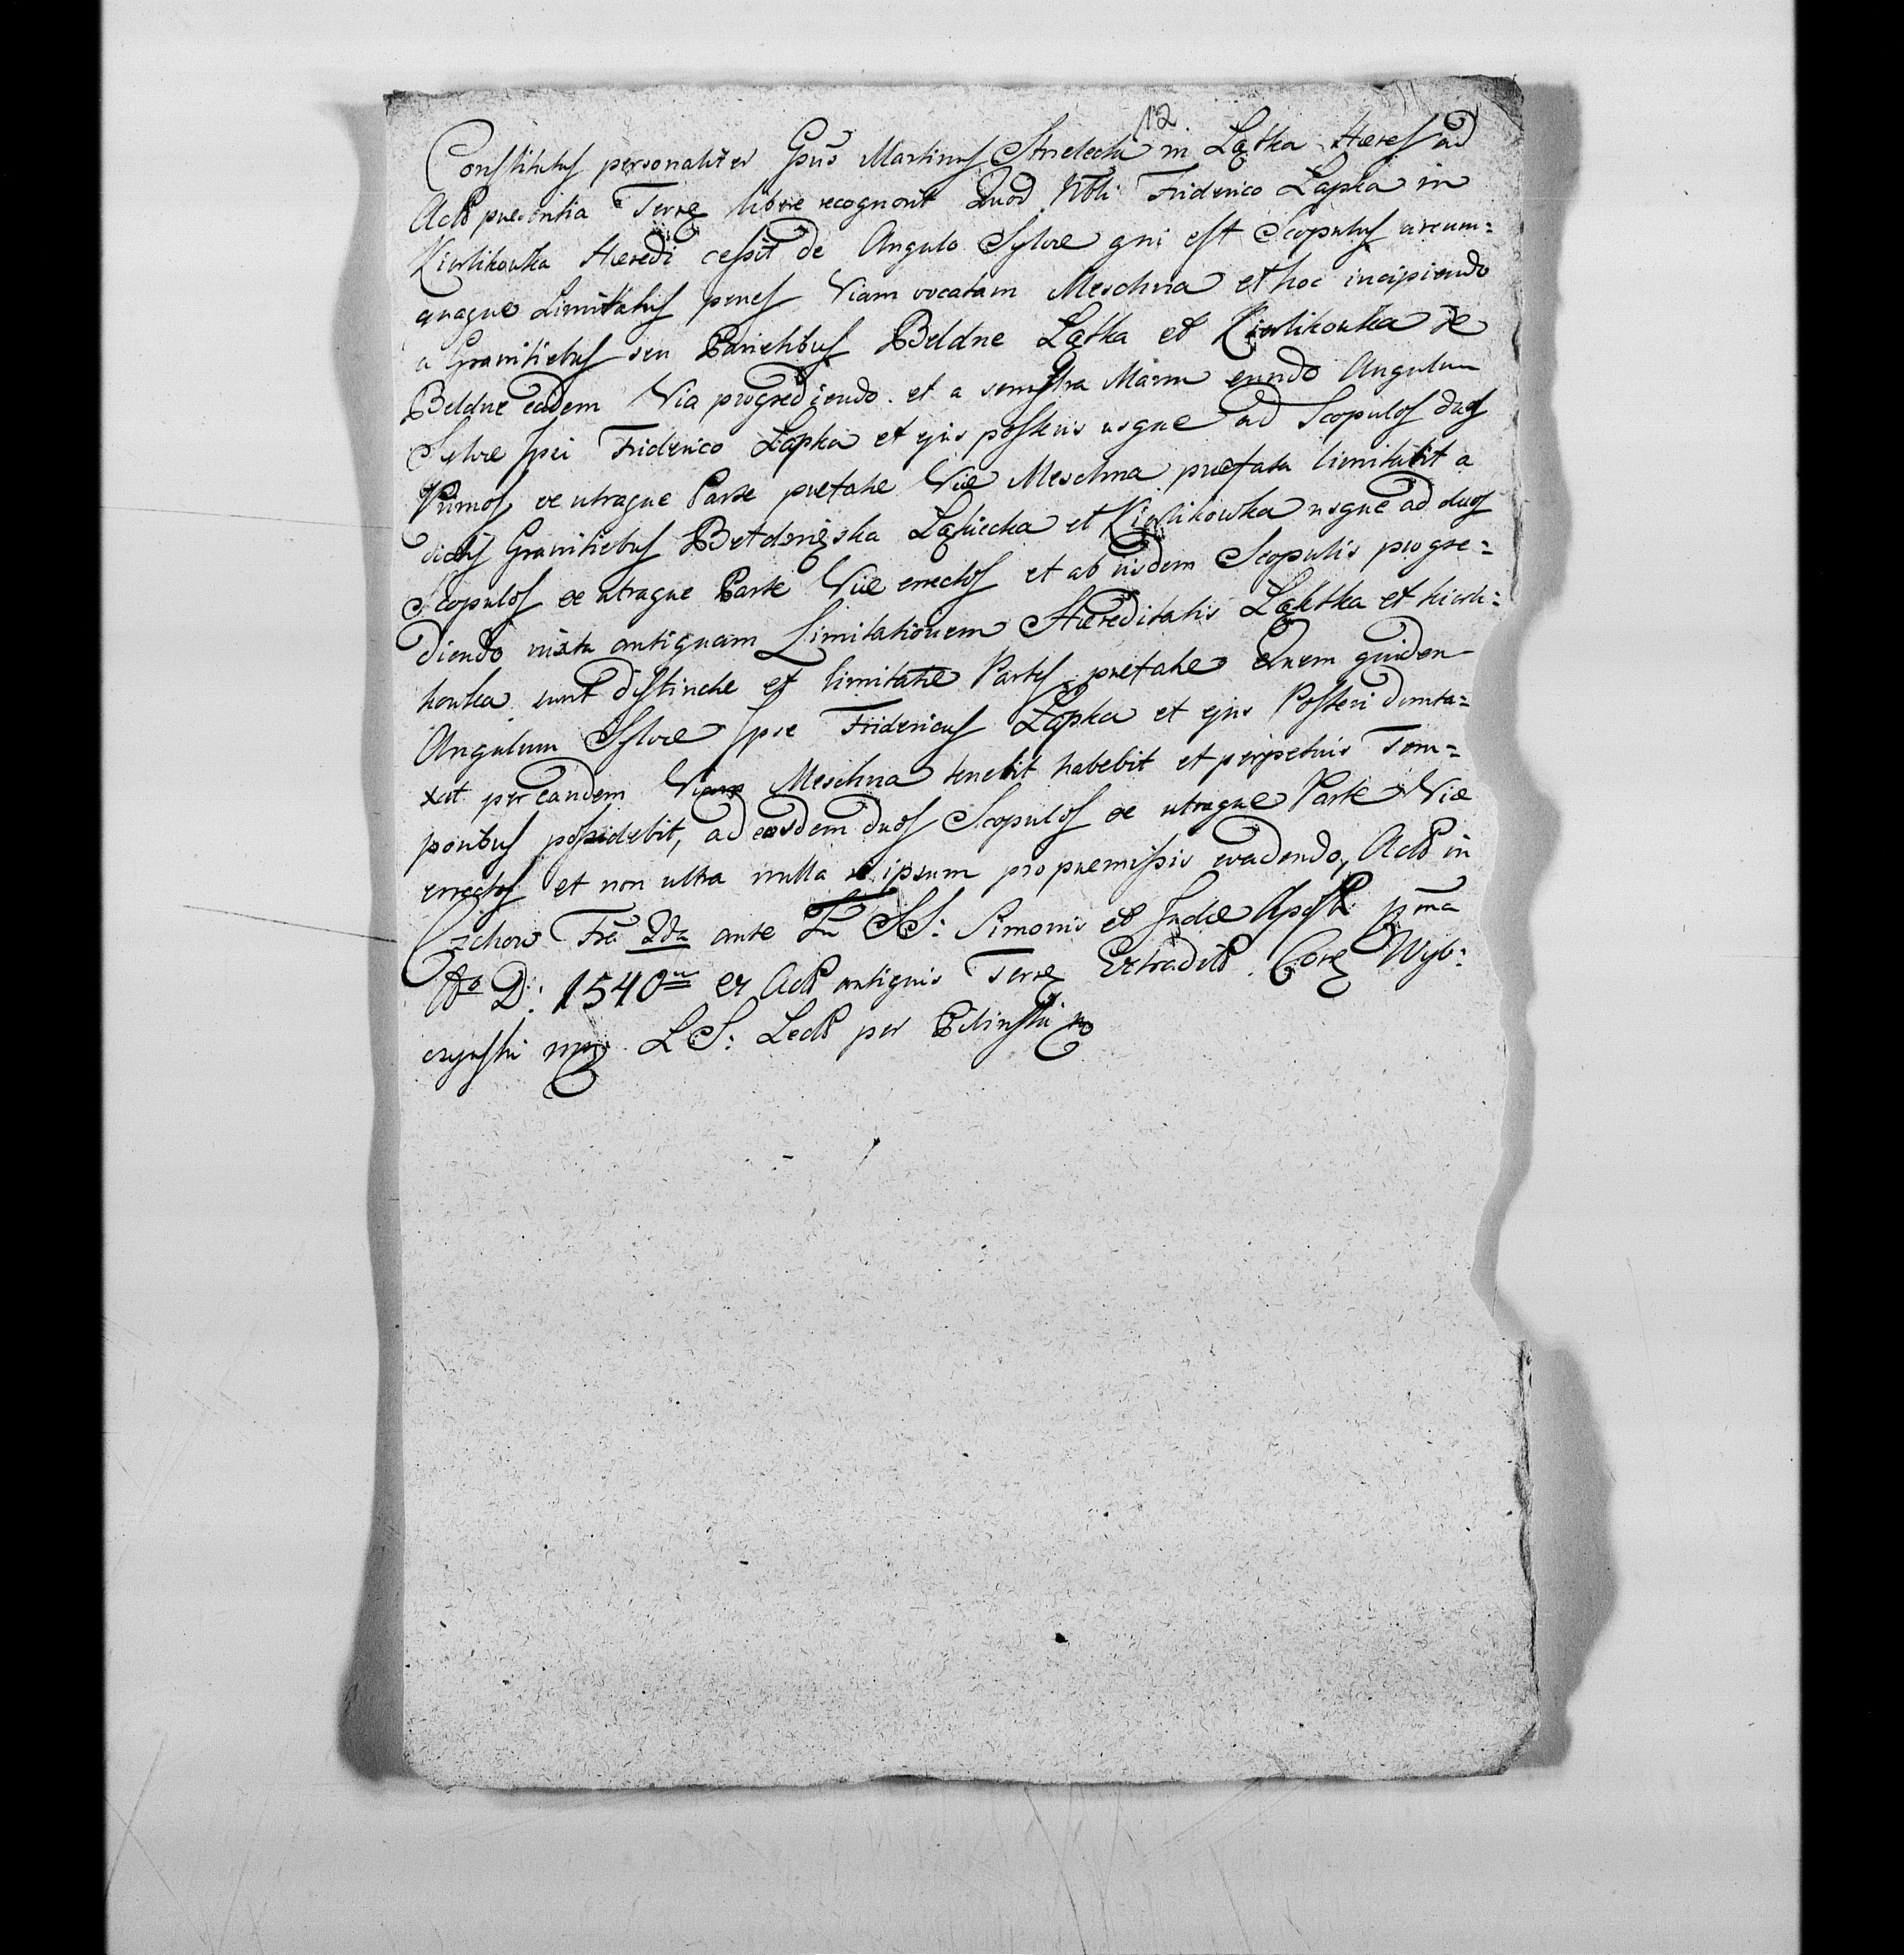 12.
Constitutus personaliter Gnus Martinus Strzelecki in Lątka Hæres ad
Acta præsentia Terræ libere recognovit Quod Nbli Friderico Łapka in
Kierlikowka Hæredi cessit de Angulo Sylvæ qui est Scopulus circum=
quaque Limitatus penes Viam vocatam Meschna et hoc incipiendo
a Granitiebus seu Parietibus Beldne Lątka et Kierlikowka de
Beldne eadem Via progrediendo. et a senistra Manu eundo Angulum
Sylvæ Ipsi Friderico Łapka et ejus posteris usque ad Scopulos duos
Primos ex utraque Parte prætatæ Viæ Meschna prætata limitabit a
dictis Granitiebus Betdnięska Ląkiecka et Kierlikowka usque ad duos
Scopulos ex utraque Parte Viæ errectos et ab iisdem Scopulis progre=
diendo iuxta antiquam Limitationem Hæreditatis Ląktka et kierli=
kowka sunt distinctæ et limitatæ Partes prætatæ Quem quidem
Angulum Sylvæ Ipse Fridericus Łapka et ejus Posteri dumta=
xat per eandem Viam Meschna tenebit habebit et perpetuis Tem=
poribus possidebit, ad eosdem duos Scopulos ex utraque Parte Viæ
errectos et non ultra nulla ipsum pro præmissis evadendo, Acta in
Czchow Fra 2da ante Fu SS: Simonis et Judæ Apost: pma
Ao D: 1540 Ex Actis antiquis Terræ Extradita. Core Wyb=
czynski mp L.S: Lecta per Bilinski mp